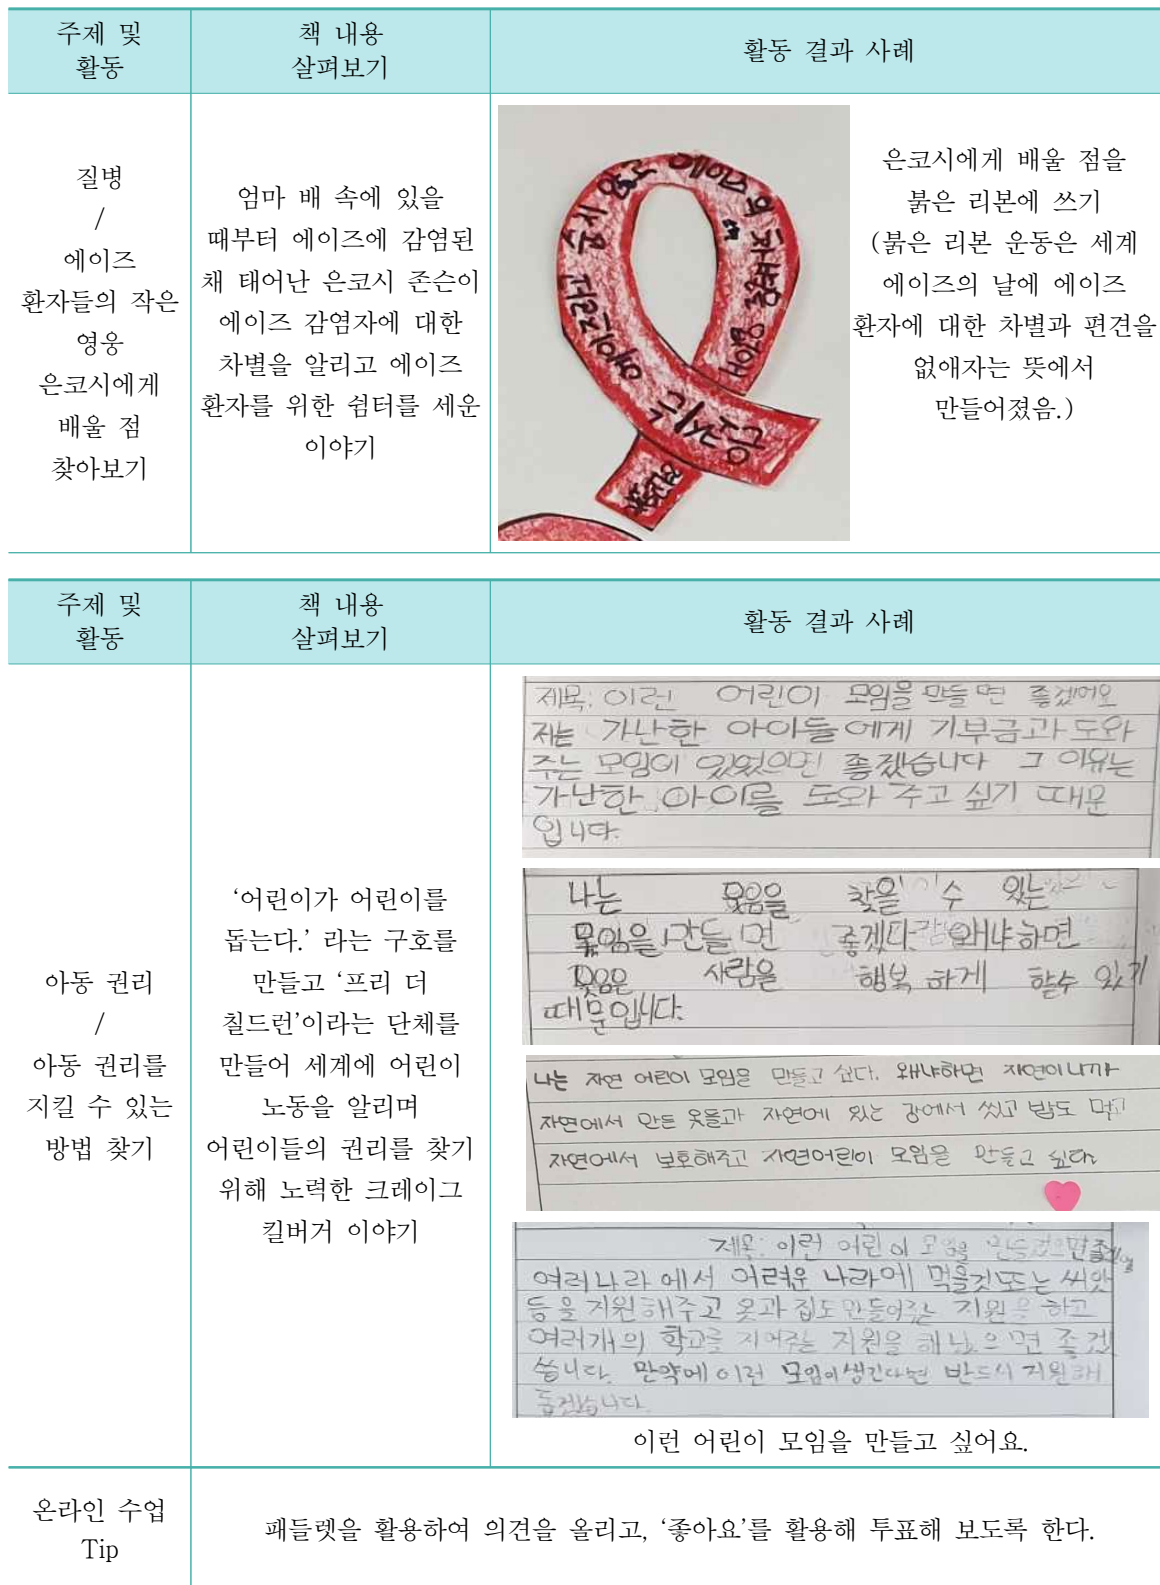 주제 및
활동
책 내용
살펴보기
활동 결과 사례
질병
/
에이즈
환자들의 작은
영웅
은코시에게
배울 점
찾아보기
엄마 배 속에 있을
때부터 에이즈에 감염된
채 태어난 은코시 존슨이
에이즈 감염자에 대한
차별을 알리고 에이즈
환자를 위한 쉼터를 세운
이야기
에이즈라고 숨지 않고 에이즈의 차별을 없애
은코시에게 배울 점을
붉은 리본에 쓰기
(붉은 리본 운동은 세계
에이즈의 날에 에이즈
환자에 대한 차별과 편견을
없애자는 뜻에서
만들어졌음.)
주제 및
활동
책 내용
살펴보기
활동 결과 사례
아동 권리
/
아동 권리를
지킬 수 있는
방법 찾기
‘어린이가 어린이를
돕는다.’ 라는 구호를
만들고 ‘프리 더
칠드런’이라는 단체를
만들어 세계에 어린이
노동을 알리며
어린이들의 권리를 찾기
위해 노력한 크레이그
킬버거 이야기
제목: 이런 어린이 모임을 만들면 좋겠어요
저는 가난한 아이들에게 기부금과 도와
주는 모임이 있었으면 좋겠습니다 그 이유는
가난한 아이를 도와 주고 싶기 때문
입니다.
나는 웃음을 찾을 수 있는
모임을 만들면 좋겠다. 왜냐하면
웃음은 사람을 행복 하게 할수 있기
때문입니다.
나는 자연 어린이 모임을 만들고 싶다. 왜냐하면 자연이니까
자연에서 만든 옷들과 자연에 있는 강에서 씻고 밥도 먹고
자연에서 보호해주고 자연어린이 모임을 만들고 싶다.
제목: 이런 어린이 모임을 만들었으면 좋겠어요
여러나라에서 어려운 나라에 먹을것또는 씨앗
등을 지원해주고 옷과 집도 만들어주는 지원을 하고
여러개의 학교를 지어주는 지원을 해 줬으면 좋겠
습니다. 만약에 이런 모임이생긴다면 반드시 지원해
돕겠습니다.
이런 어린이 모임을 만들고 싶어요.
온라인 수업
Tip
패들렛을 활용하여 의견을 올리고, ‘좋아요’를 활용해 투표해 보도록 한다.